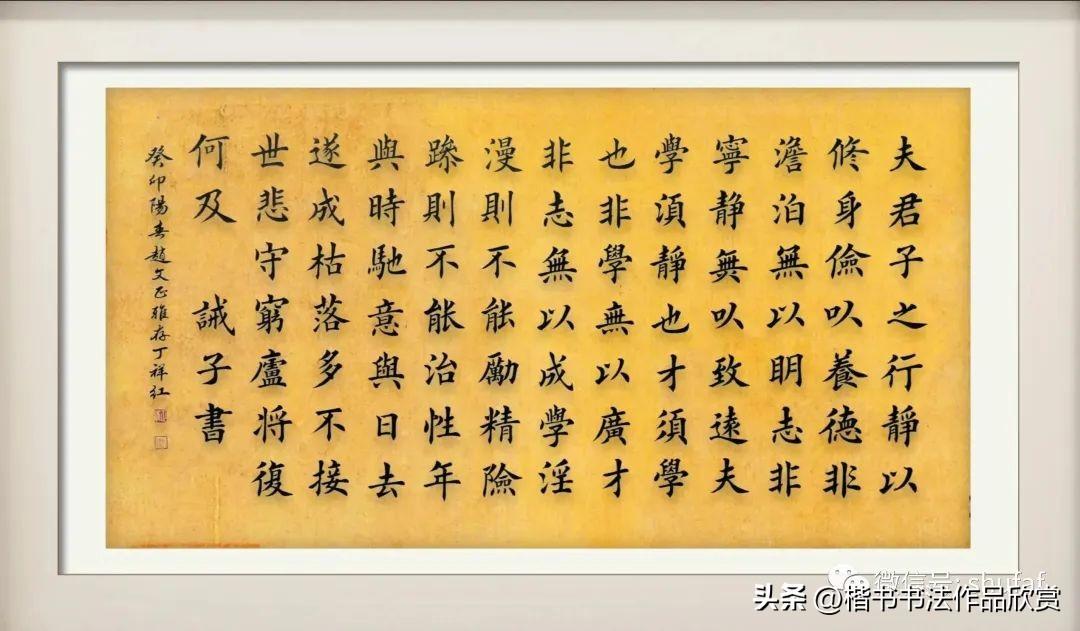 夫君子之行靜以
修身儉以養德非
澹泊無以明志非
寧静無以致遠夫
學湏靜也才須學
也非學無以廣才
非志無以成學淫
漫則不能勵精險
躁則不能治性年
與時馳意與日去
遂成枯落多不接
世悲守窮廬将復
何及 誡子書
癸卯陽春趙文正雅存丁祥红
微信号: shufaf
头条 @楷书书法作品欣赏